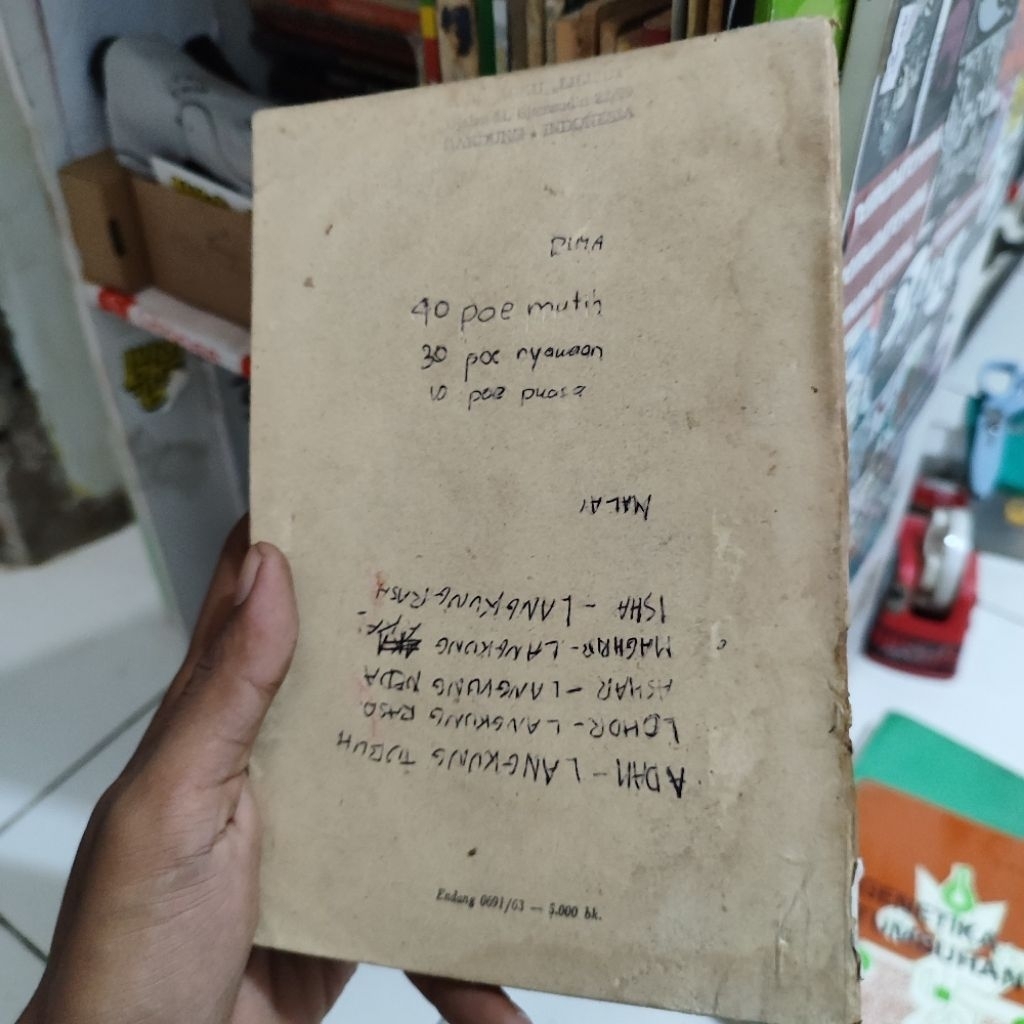 40 poe mutih
30 poe nyawaan
10 poe puasa
MALAI
ADAM - LANGKUNG TUBUH
LOHOR - LANGKUNG RASO
ASHAR - LANGKUNG NEDA
MAGHRIB - LANGKUNG
ISHA - LANGKUNG RASA
Endang 0691/63 — 5.000 bk.
GENETIKA
TUMBUHAN